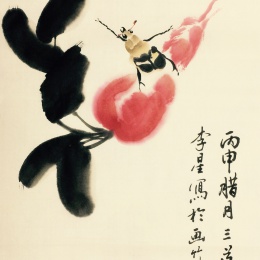 丙申腊月三
李星寫於画竹